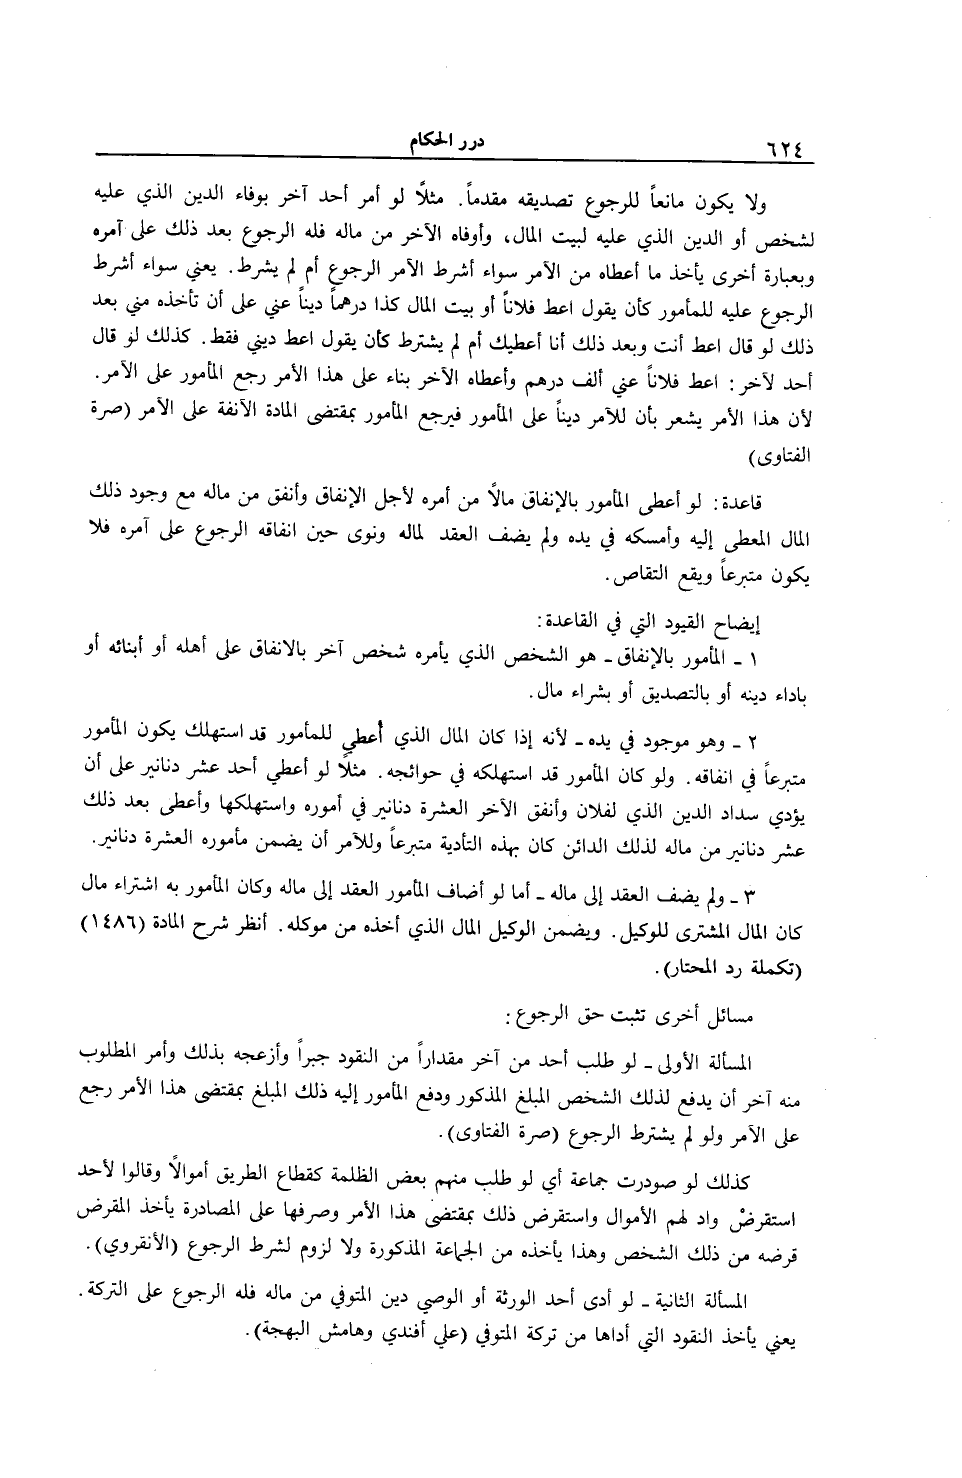 ٦٢٤
درر الحكام
ولا يكون مانعاً للرجوع تصديقه مقدماً. مثلًا لو أمر أحد آخر بوفاء الدين الذي عليه
لشخص أو الدين الذي عليه لبيت المال، وأوفاه الآخر من ماله فله الرجوع بعد ذلك على آمره
وبعبارة أخرى يأخذ ما أعطاه من الآمر سواء أشرط الآمر الرجوع أم لم يشرط. يعني سواء أشرط
الرجوع عليه للمأمور كأن يقول اعط فلاناً أو بيت المال كذا درهماً ديناً عني على أن تأخذه مني بعد
ذلك لو قال اعط أنت وبعد ذلك أنا أعطيك أم لم يشترط كأن يقول اعط ديني فقط. كذلك لو قال
أحد لآخر: اعط فلاناً عني ألف درهم وأعطاه الآخر بناء على هذا الأمر رجع المأمور على الآمر.
لأن هذا الأمر يشعر بأن للآمر ديناً على المأمور فيرجع المأمور بمقتضى المادة الآنفة على الآمر (صرة
الفتاوى)
قاعدة: لو أعطى المأمور بالإنفاق مالًا من أمره لأجل الإنفاق وأنفق من ماله مع وجود ذلك
المال المعطى إليه وأمسكه في يده ولم يضف العقد لماله ونوى حين انفاقه الرجوع على آمره فلا
يكون متبرعاً ويقع التقاص.
إيضاح القيود التي في القاعدة:
١ ـ المأمور بالإنفاق ـ هو الشخص الذي يأمره شخص آخر بالانفاق على أهله أو أبنائه أو
باداء دينه أو بالتصديق أو بشراء مال.
٢ ـ وهو موجود في يده ـ لأنه إذا كان المال الذي أعطي للمأمور قد استهلك يكون المأمور
متبرعاً في انفاقه. ولو كان المأمور قد استهلكه في حوائجه. مثلًا لو أعطي أحد عشر دنانير على أن
يؤدي سداد الدين الذي لفلان وأنفق الآخر العشرة دنانير في أموره واستهلكها وأعطى بعد ذلك
عشر دنانير من ماله لذلك الدائن كان بهذه التأدية متبرعاً وللآمر أن يضمن مأموره العشرة دنانير.
٣ ـ ولم يضف العقد إلى ماله ـ أما لو أضاف المأمور العقد إلى ماله وكان المأمور به اشتراء مال
كان المال المشترى للوكيل. ويضمن الوكيل المال الذي أخذه من موكله. أنظر شرح المادة (١٤٨٦)
(تكملة رد المحتار).
مسائل أخرى تثبت حق الرجوع:
المسألة الأولى ـ لو طلب أحد من آخر مقداراً من النقود جبراً وأزعجه بذلك وأمر المطلوب
منه آخر أن يدفع لذلك الشخص المبلغ المذكور ودفع المأمور إليه ذلك المبلغ بمقتضى هذا الأمر رجع
على الآمر ولو لم يشترط الرجوع (صرة الفتاوى).
كذلك لو صودرت جماعة أي لو طلب منهم بعض الظلمة كقطاع الطريق أموالًا وقالوا لأحد
استقرضْ واد لهم الأموال واستقرض ذلك بمقتضى هذا الأمر وصرفها على المصادرة يأخذ المقرض
قرضه من ذلك الشخص وهذا يأخذه من الجماعة المذكورة ولا لزوم لشرط الرجوع (الأنقروي).
المسألة الثانية ـ لو أدى أحد الورثة أو الوصي دين المتوفي من ماله فله الرجوع على التركة.
يعني يأخذ النقود التي أداها من تركة المتوفي (علي أفندي وهامش البهجة).